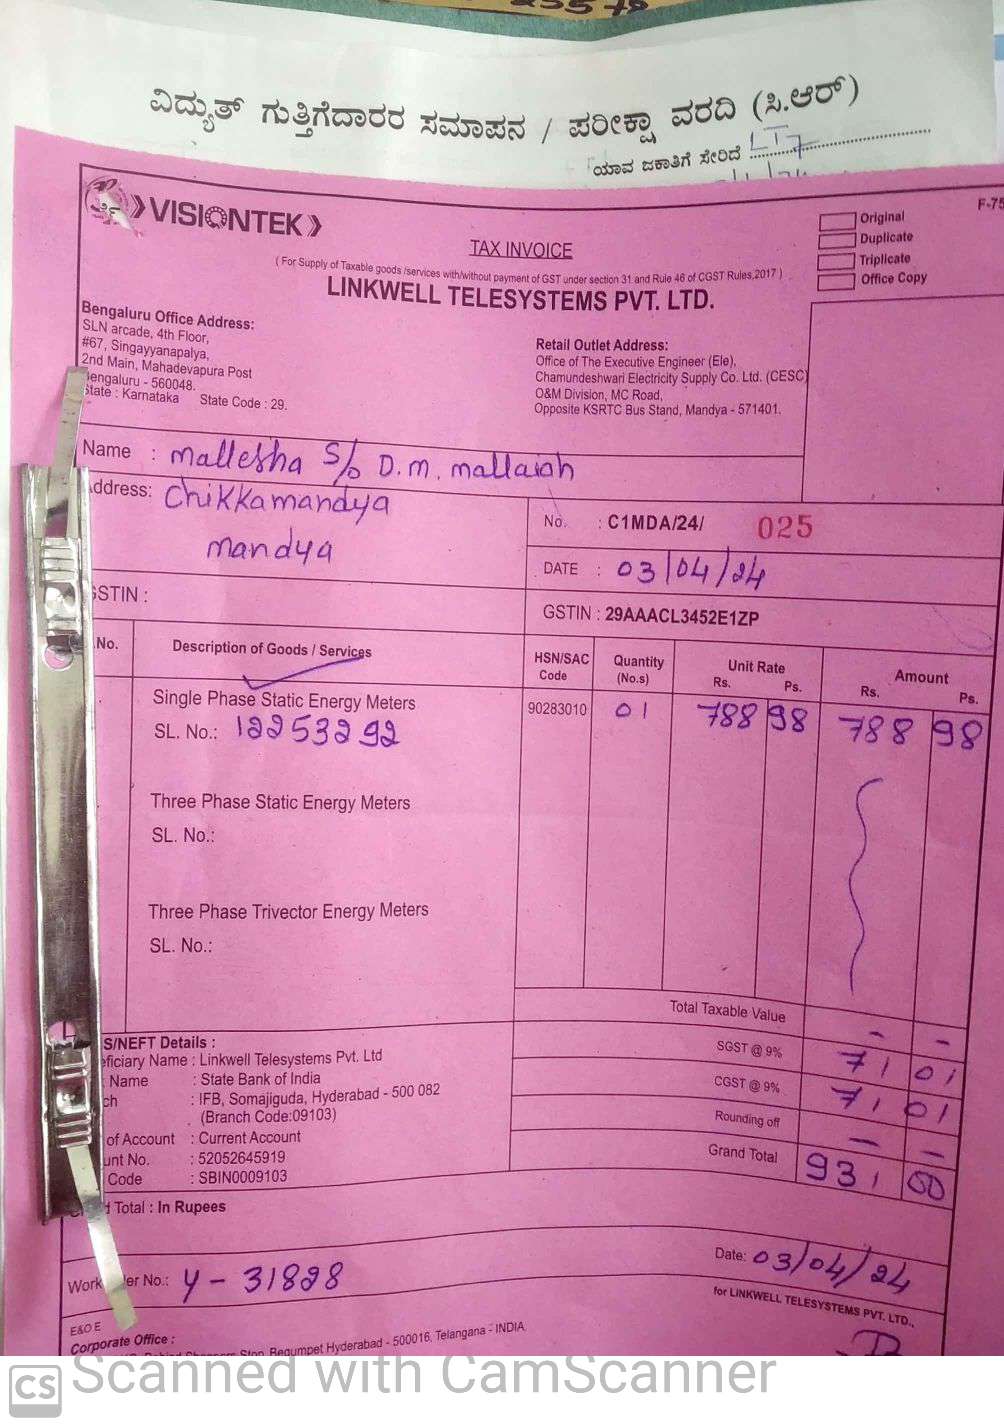 ವಿದ್ಯುತ್ ಗುತ್ತಿಗೆದಾರರ ಸಮಾಪನ / ಪರೀಕ್ಷಾ ವರದಿ (ಸಿ.ಆರ್)
ಯಾವ ಜಕಾತಿಗೆ ಸೇರಿದೆ LT7
VISIONTEK
F-75
Original
Duplicate
Triplicate
Office Copy
TAX INVOICE
( For Supply of Taxable goods /services with/without payment of GST under section 31 and Rule 46 of CGST Rules,2017 )
LINKWELL TELESYSTEMS PVT. LTD.
Bengaluru Office Address:
SLN arcade, 4th Floor,
#67, Singayyanapalya,
2nd Main, Mahadevapura Post
engaluru - 560048.
State : Karnataka State Code : 29.
Retail Outlet Address:
Office of The Executive Engineer (Ele),
Chamundeshwari Electricity Supply Co. Ltd. (CESC)
O&M Division, MC Road,
Opposite KSRTC Bus Stand, Mandya - 571401.
Name : Mallesha S/o D.M. Mallaiah
ddress: Chikkamandya
Mandya
No. : C1MDA/24/ 025
DATE : 03/04/24
GSTIN :
GSTIN : 29AAACL3452E1ZP
.No. Description of Goods / Services HSN/SAC Code Quantity (No.s) Unit Rate Rs. Ps. Amount Rs. Ps.
Single Phase Static Energy Meters 90283010 01 788 98 788 98
SL. No.: 12253292
Three Phase Static Energy Meters
SL. No.:
Three Phase Trivector Energy Meters
SL. No.:
Total Taxable Value - -
SGST @ 9% 71 01
CGST @ 9% 71 01
Rounding off - -
Grand Total 931 00
S/NEFT Details :
eficiary Name : Linkwell Telesystems Pvt. Ltd
Name : State Bank of India
ch : IFB, Somajiguda, Hyderabad - 500 082
(Branch Code:09103)
of Account : Current Account
unt No. : 52052645919
Code : SBIN0009103
d Total : In Rupees
Work er No.: Y - 31828
Date: 03/04/24
for LINKWELL TELESYSTEMS PVT. LTD.,
E&O E
Corporate Office :
Begumpet Hyderabad - 500016, Telangana - INDIA.
CS Scanned with CamScanner